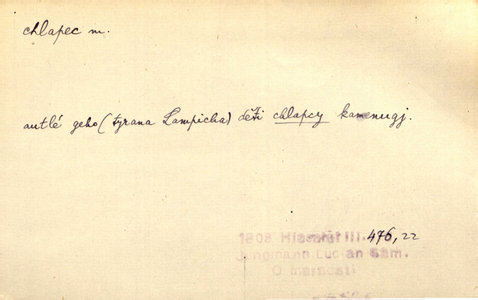 chlapec m.
autlé geho (tyrana Lampicha) děti chlapcy kamenugj.
1808 Hlasatel III. 476,22
Jungmann Lucian Sám.
O